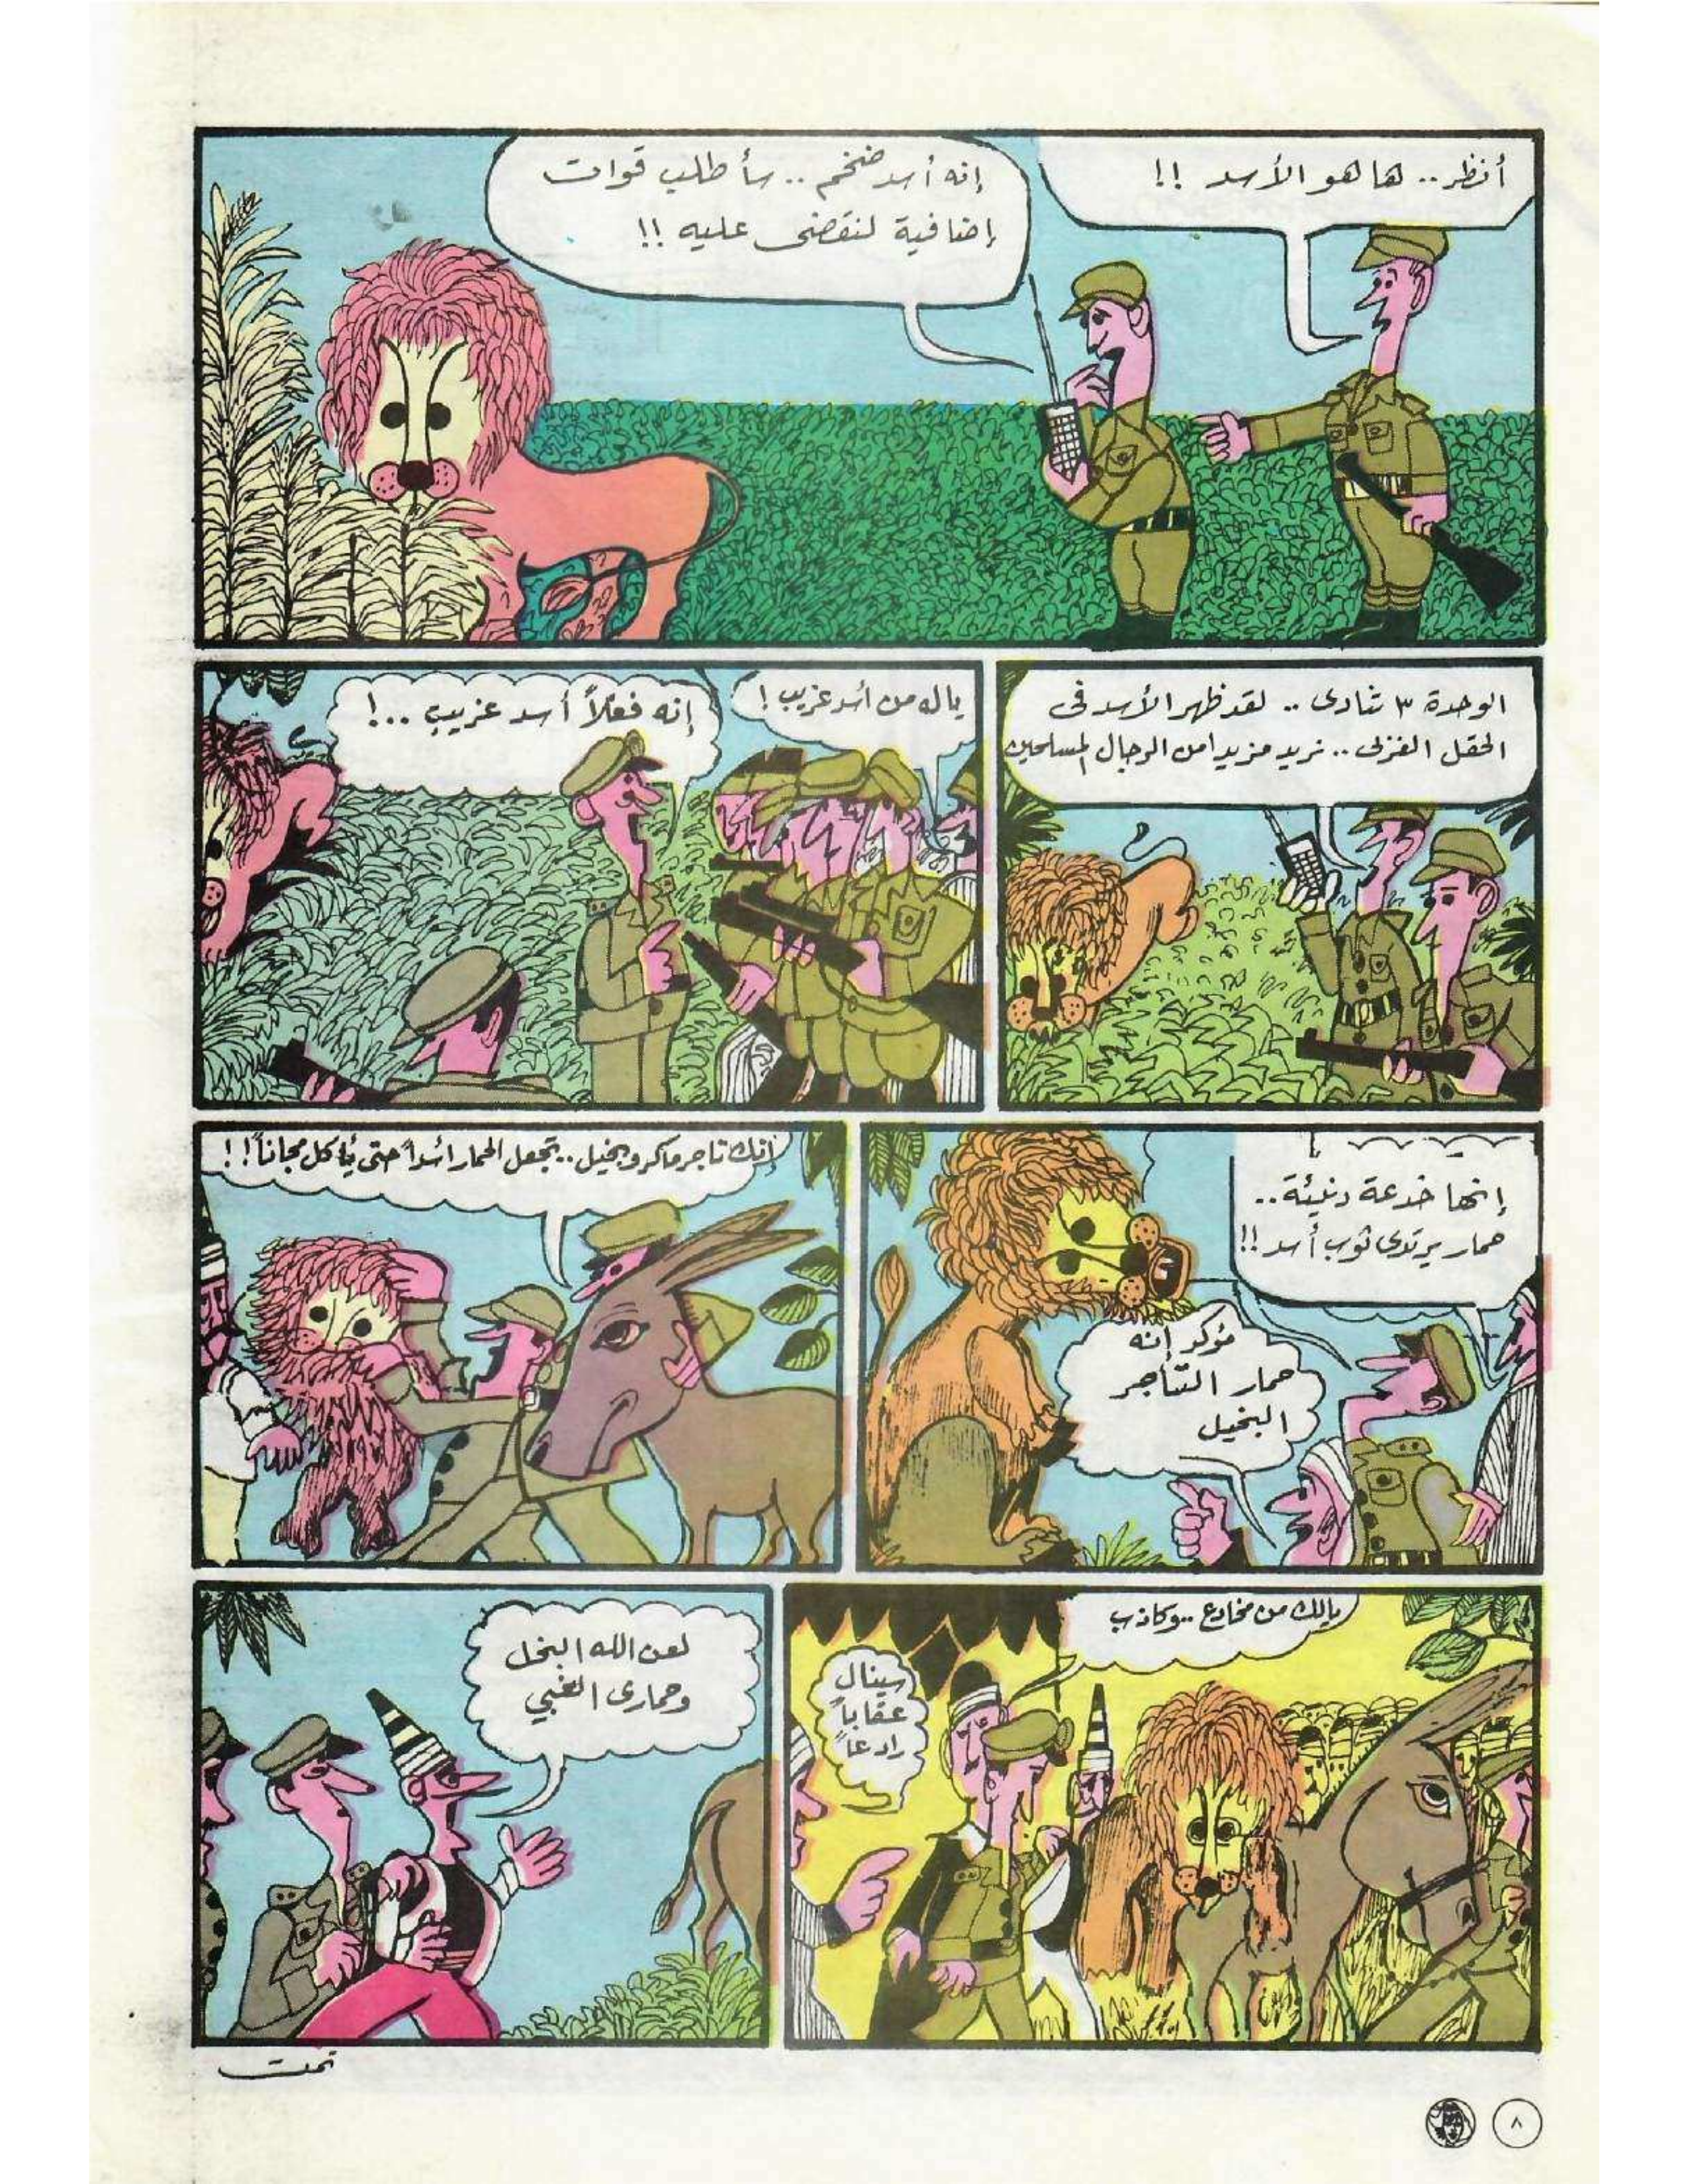 أنظر.. ها هو الأسد !!
إنه أسد ضخم .. سأطلب قوات
إضافية لنقضى عليه !!
الوحدة ٣ تنادى .. لقد ظهر الأسد فى
الحقل الغربى .. نريد مزيدا من الرجال المسلحين
ياله من أسد غريب !
إنه فعلاً أسد غريب ..!
إنها خدعة دنيئة..
حمار يرتدى ثوب أسد !!
مؤكد إنه
حمار التاجر
البخيل
إنك تاجر ماكر وبخيل.. تجعل الحمار أسداً حتى يأكل مجاناً !!
يالك من مخادع .. وكاذب
سينال
عقاباً
رادعاً
لعن الله البخل
وحمارى الغبي
تمت
٨